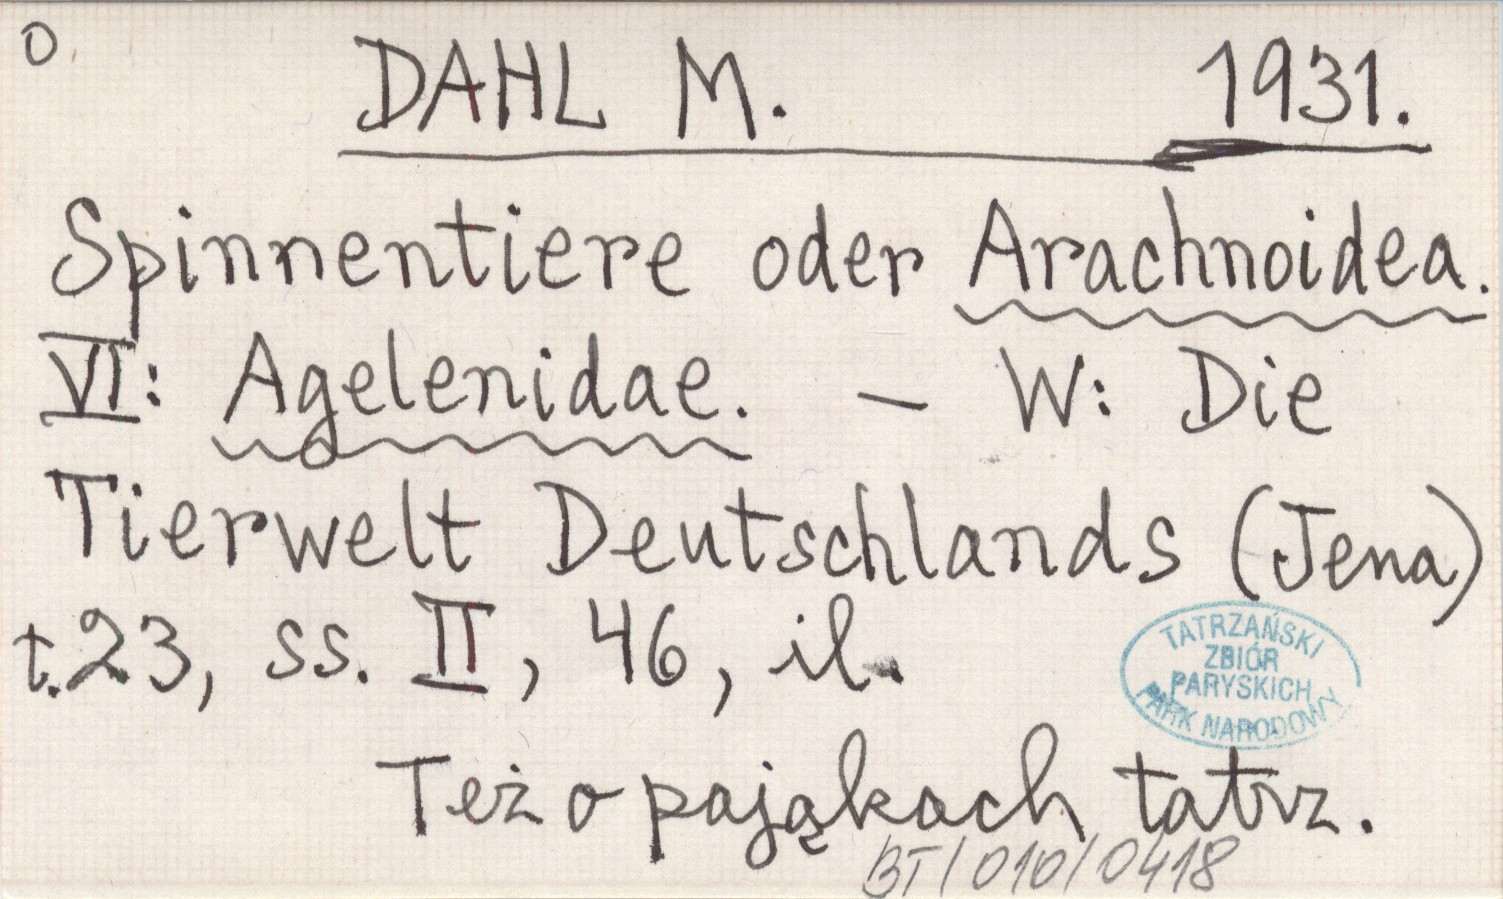 O
DAHL M. 1931.
Spinnentiere oder Arachnoidea.
VI: Agelenidae. — W: Die
Tierwelt Deutschlands (Jena)
t. 23, ss. II, 46, il.
TATRZAŃSKI
ZBIÓR
PARYSKICH
PARK NARODOWY
Też o pająkach tatrz.
BT/010/0418